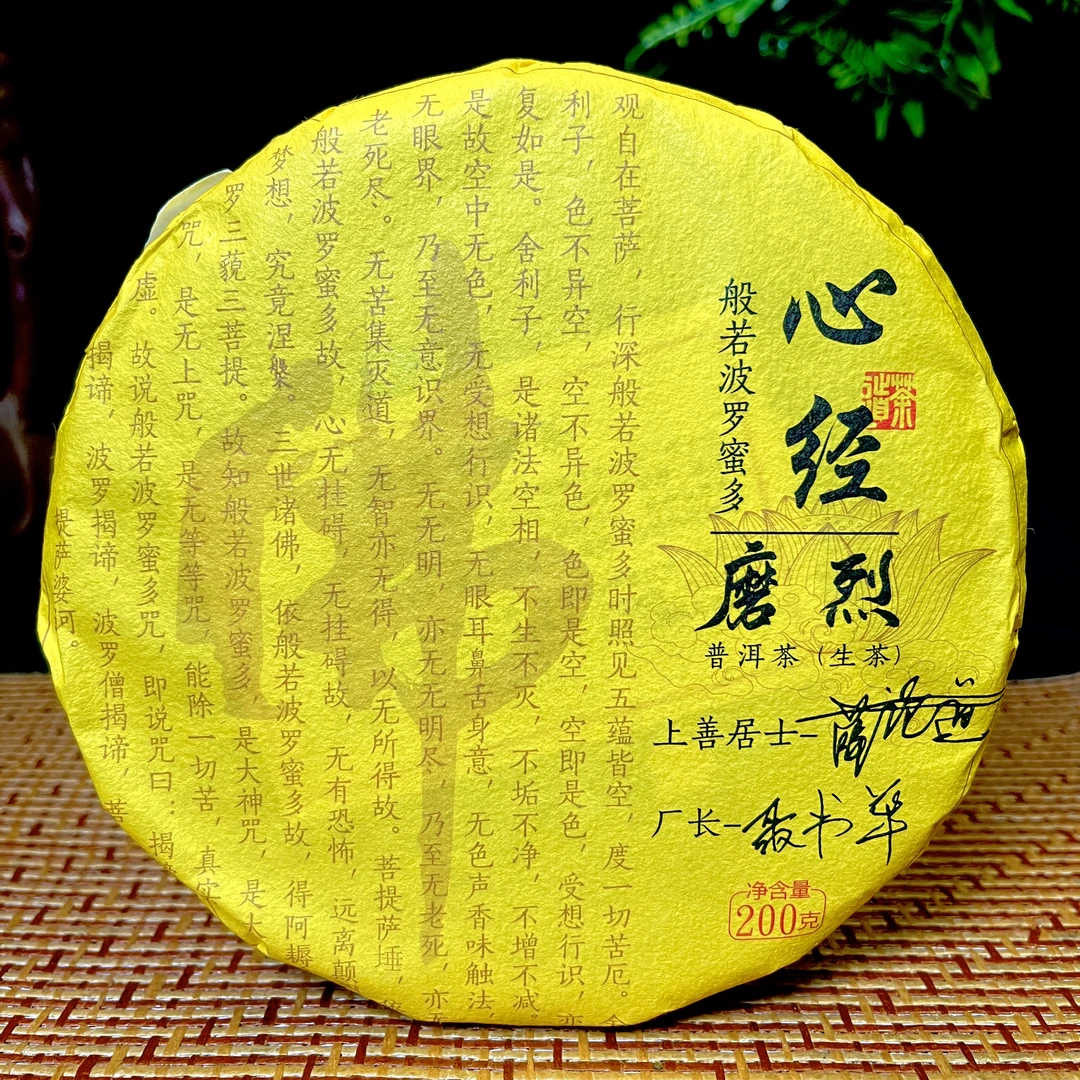 观自在菩萨，行深般若波罗蜜多时照见五蕴皆空，度一切苦厄。
利子，色不异空，空不异色，色即是空，空即是色，受想行识，亦
复如是。舍利子，是诸法空相，不生不灭，不垢不净，不增不减
是故空中无色，无受想行识，无眼耳鼻舌身意，无色声香味触法，
无眼界，乃至无意识界。无无明，亦无无明尽，乃至无老死，亦无
老死尽。无苦集灭道，无智亦无得，以无所得故。菩提萨埵，
般若波罗蜜多故，心无挂碍，无挂碍故，无有恐怖，远离颠
梦想，究竟涅槃。三世诸佛，依般若波罗蜜多故，得阿耨
罗三藐三菩提。故知般若波罗蜜多，是大神咒，是大
咒，是无上咒，是无等等咒，能除一切苦，真实
虚。故说般若波罗蜜多咒，即说咒曰：揭
揭谛，波罗揭谛，波罗僧揭谛，菩
提萨婆诃。
佛
心经
般若波罗蜜多
茶道
磨烈
普洱茶（生茶）
上善居士-
厂长-聂书华
净含量
200克